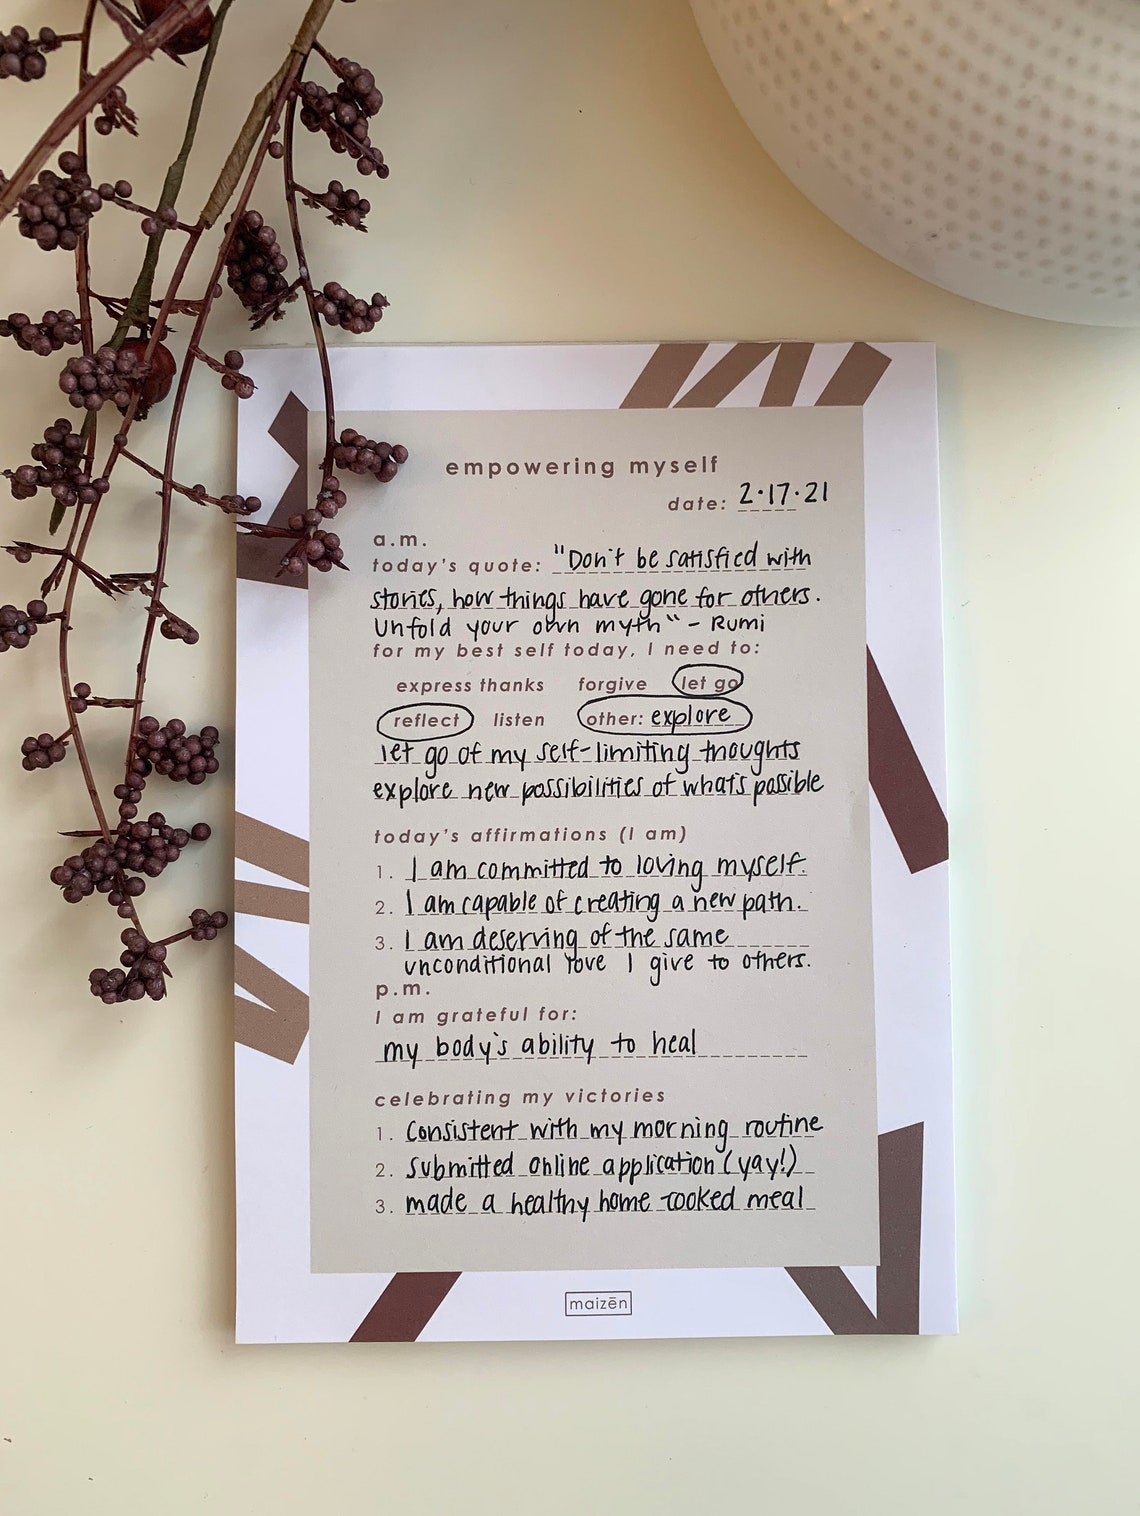 empowering myself
date: 2·17·21
a.m.
today's quote: "Don't be satisfied with
stories, how things have gone for others.
Unfold your own myth" - Rumi
for my best self today, I need to:
express thanks forgive let go
reflect listen other: explore
let go of my self-limiting thoughts
explore new possibilities of what's possible
today's affirmations (I am)
1. I am committed to loving myself.
2. I am capable of creating a new path.
3. I am deserving of the same
unconditional love I give to others.
p.m.
I am grateful for:
my body's ability to heal
celebrating my victories
1. Consistent with my morning routine
2. submitted online application (yay!)
3. made a healthy home cooked meal
maizēn